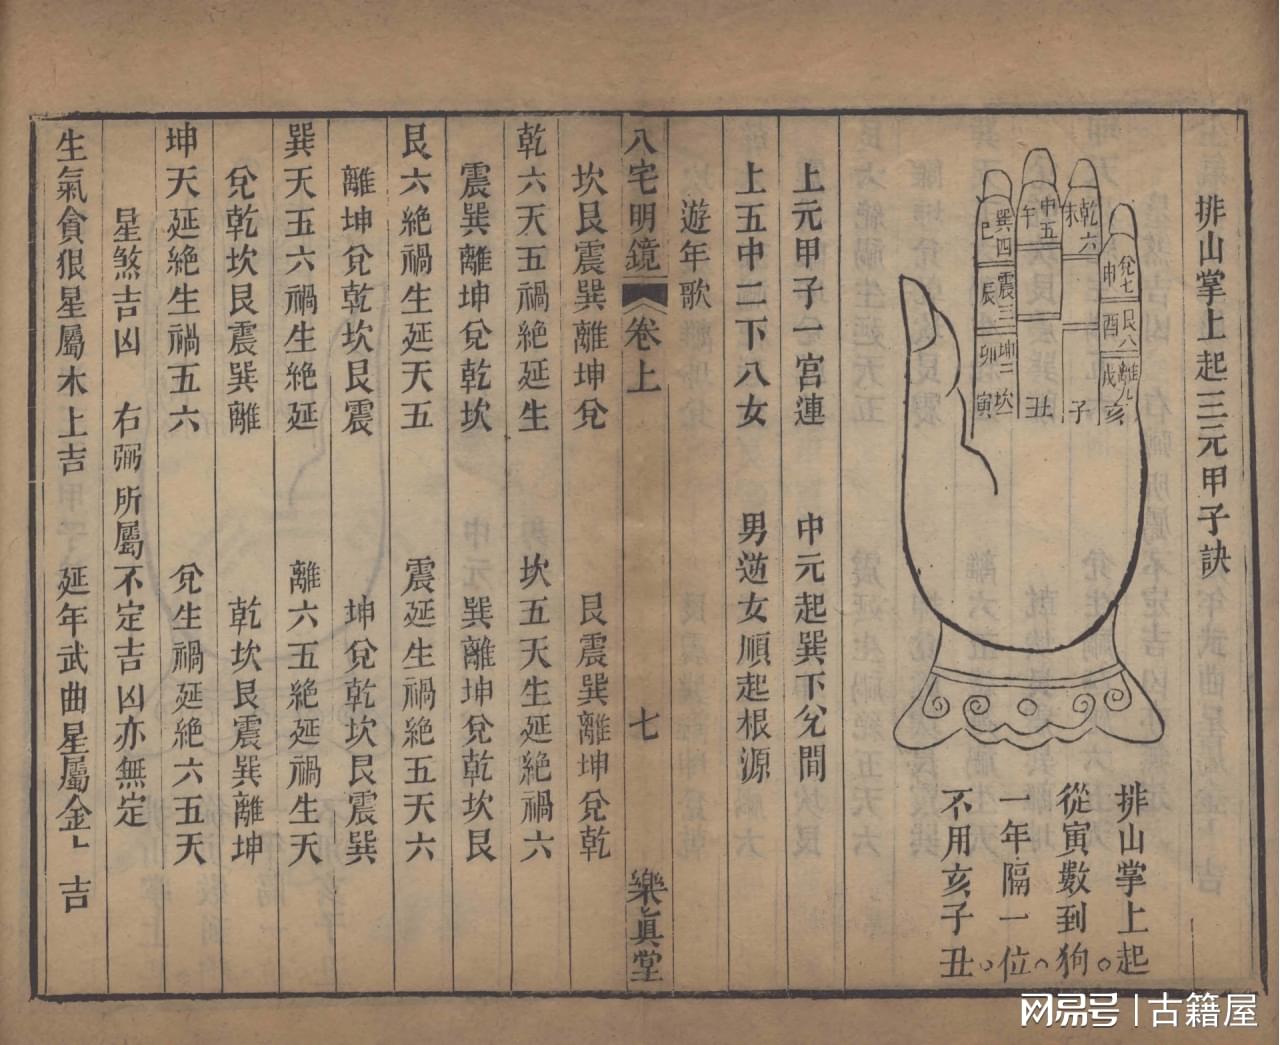 排山掌上起三元甲子訣
巽四
巳
震三
辰
坤二
卯
坎一
寅
中五
午
丑
乾六
未
子
兌七
申
艮八
酉
離九
戌
亥
排山掌上起。
從寅數到狗
一年隔一位。
不用亥子丑
上元甲子一宮連　中元起巽下兌間
上五中二下八女　男逆女順起根源
遊年歌
坎艮震巽離坤兌　艮震巽離坤兌乾
八宅明鏡　卷上　七　樂真堂
乾六天五禍絕延生　坎五天生延絕禍六
震巽離坤兌乾坎　巽離坤兌乾坎艮
艮六絕禍生延天五　震延生禍絕五天六
離坤兌乾坎艮震　坤兌乾坎艮震巽
巽天五六禍生絕延　離六五絕延禍生天
兌乾坎艮震巽離　乾坎艮震巽離坤
坤天延絕生禍五六　兌生禍延絕六五天
星煞吉凶　右弼所屬不定吉凶亦無定
生氣貪狠星屬木上吉　延年武曲星屬金上吉
网易号 | 古籍屋